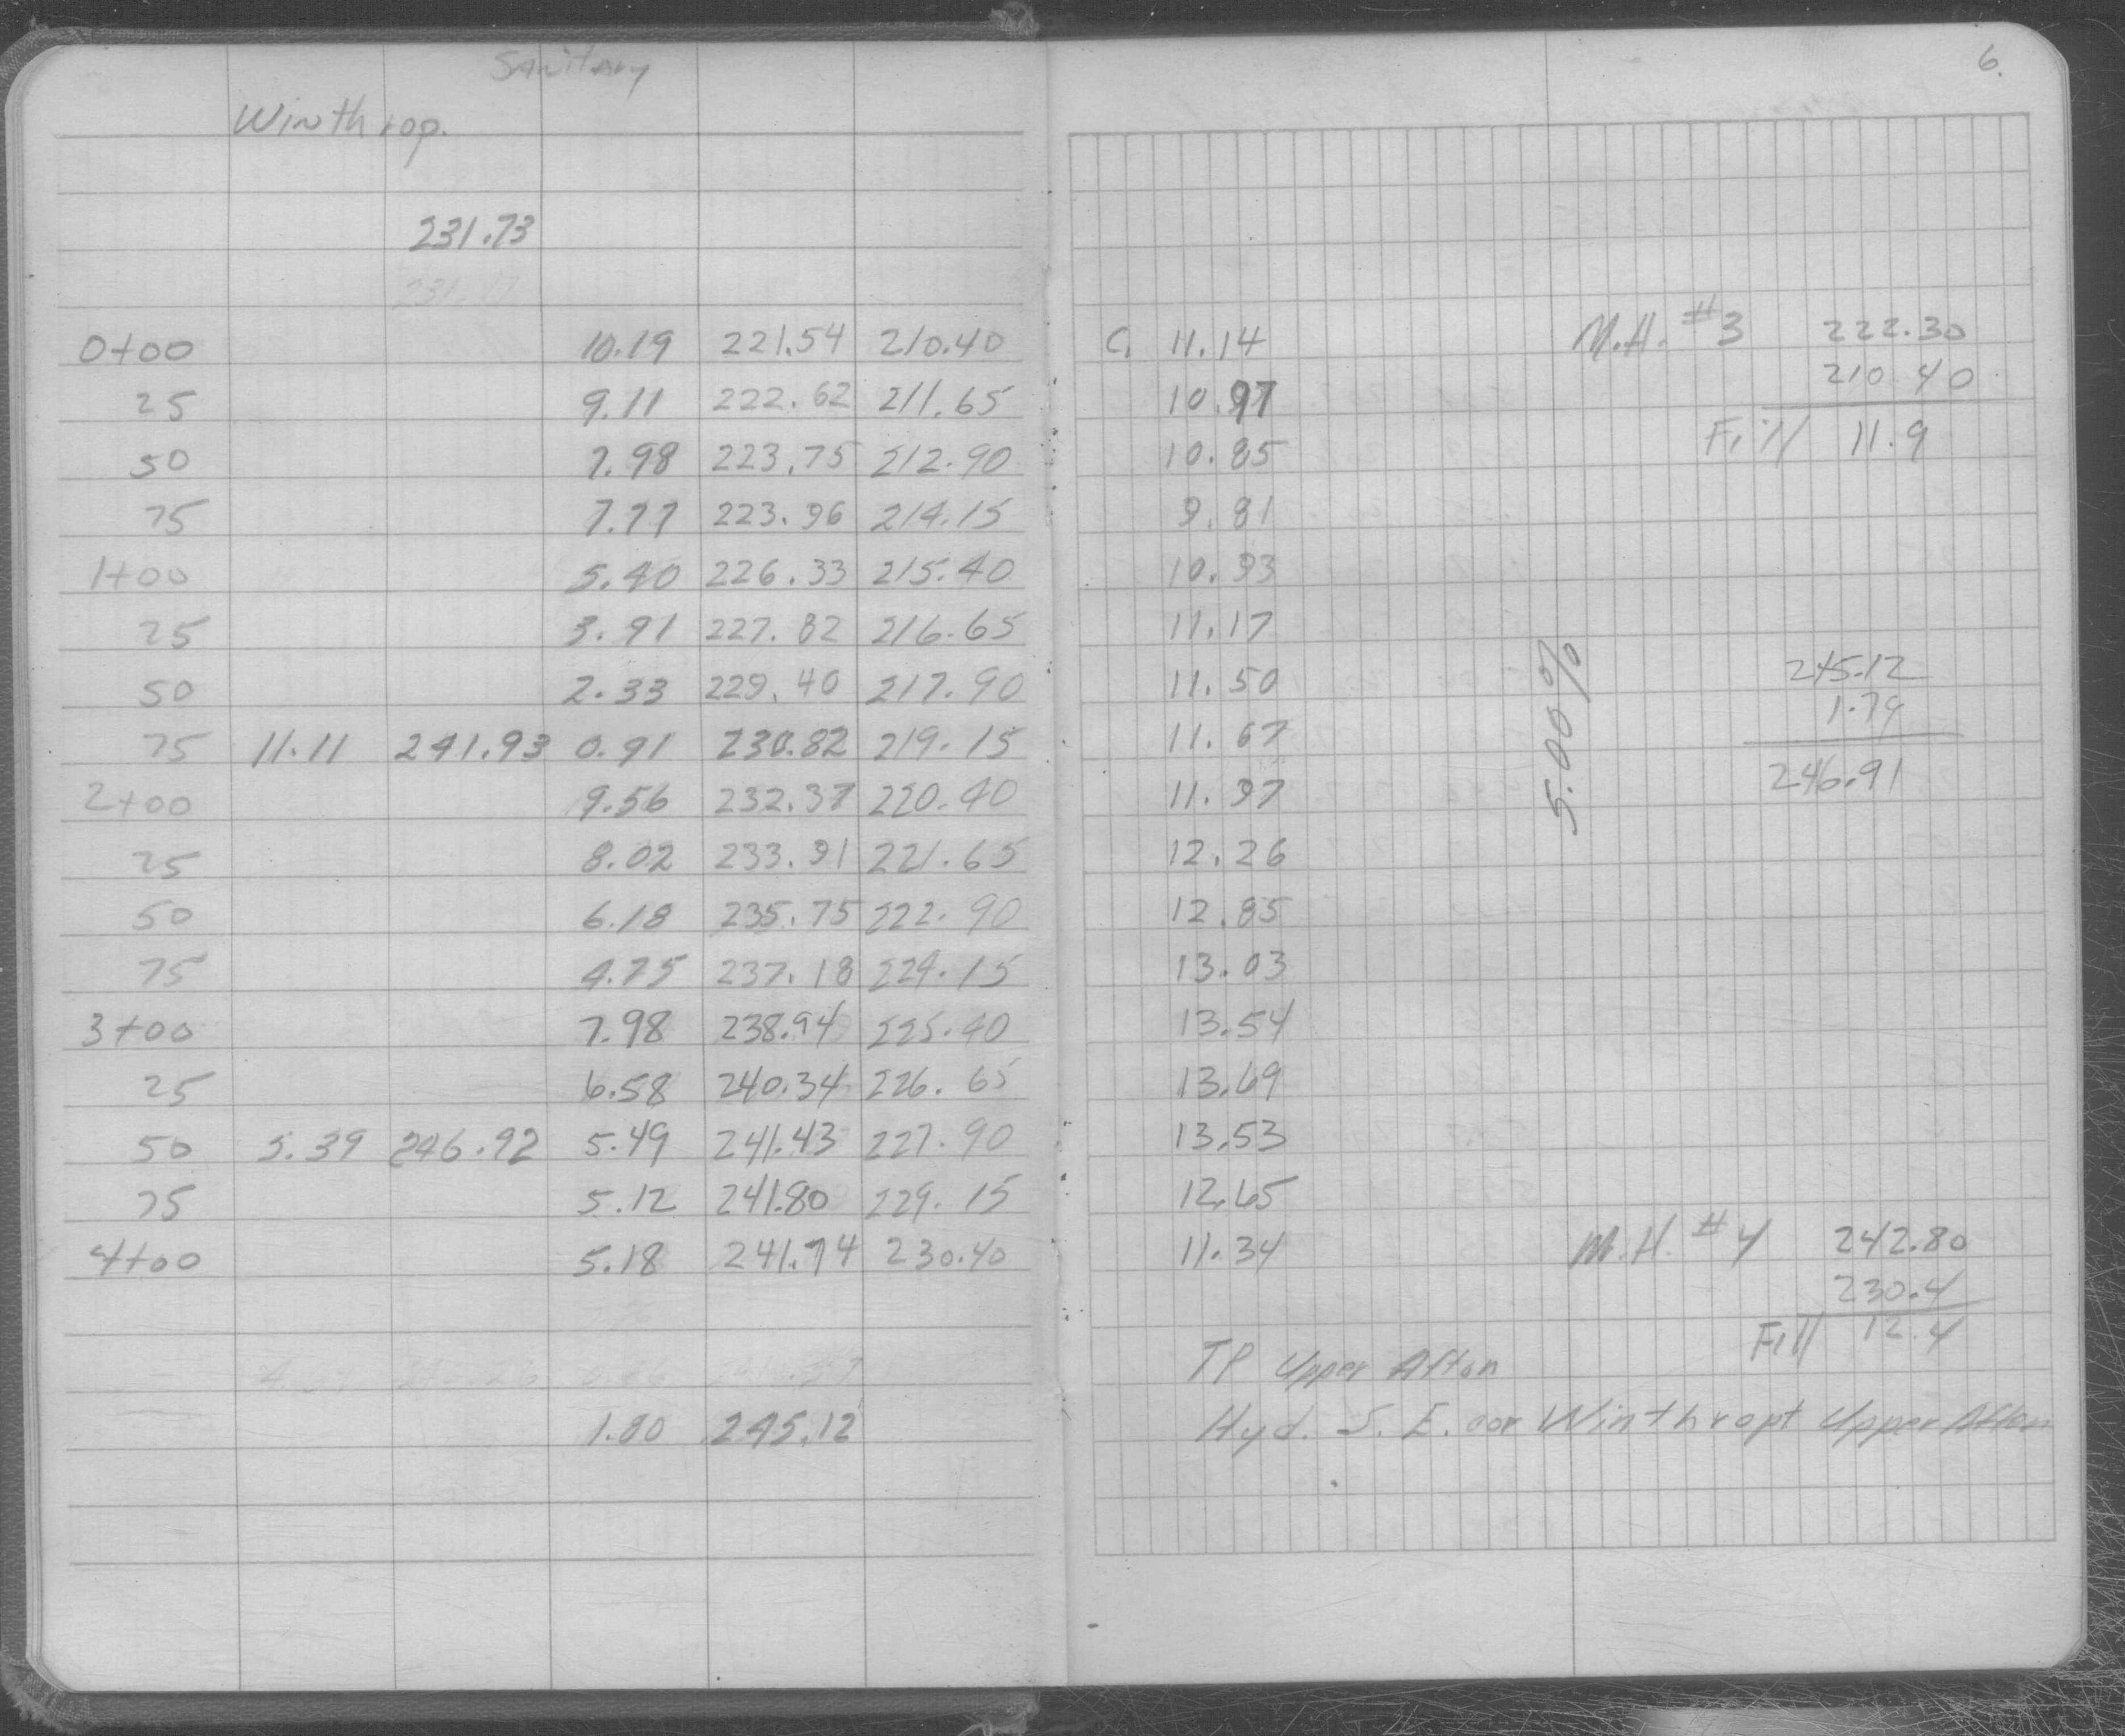 Sanitary
6.
Winthrop.
231.73
0+00 10.19 221.54 210.40 C. 11.14 M.H. #3 222.30
210.40
25 9.11 222.62 211.65 10.97
Fill 11.9
50 7.98 223.75 212.90 10.85
75 7.77 223.96 214.15 9.81
1+00 5.40 226.33 215.40 10.93
25 3.91 227.82 216.65 11.17
50 2.33 229.40 217.90 11.50 245.12
1.79
75 11.11 241.93 0.91 230.82 219.15 11.67 5.00%
246.91
2+00 9.56 232.37 220.40 11.97
25 8.02 233.91 221.65 12.26
50 6.18 235.75 222.90 12.85
75 4.75 237.18 224.15 13.03
3+00 7.98 238.94 225.40 13.54
25 6.58 240.34 226.65 13.69
50 5.39 246.92 5.49 241.43 227.90 13.53
75 5.12 241.80 229.15 12.65
4+00 5.18 241.74 230.40 11.34 M.H. #4 242.80
230.4
Fill 12.4
TP Upper Afton
1.80 245.12 Hyd. S.E. cor Winthrop+ Upper Afton